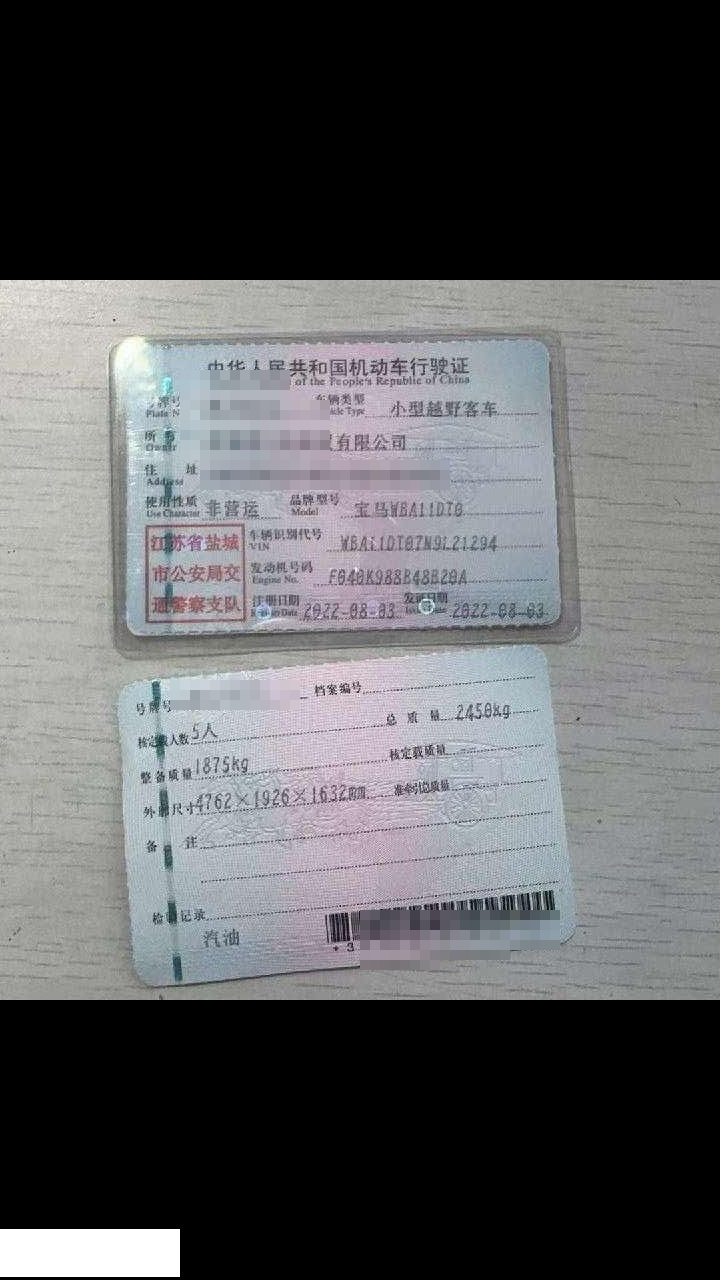 中华人民共和国机动车行驶证
of the People's Republic of China
号牌号
Plate N
车辆类型
Vehicle Type
小型越野客车
所
Owner
有限公司
住 址
Address
使用性质
Use Character
非营运
品牌型号
Model
宝马WBA11DT0
江苏省盐城
市公安局交
通警察支队
车辆识别代号
VIN
WBA11DT07N9L21294
发动机号码
Engine No.
F040K988B48B20A
注册日期
2022-08-03
发证日期
2022-08-03
号牌号
档案编号
核定载人数 5人
总 质 量 2450kg
整备质量 1875kg
核定载质量
外廓尺寸 4762×1926×1632mm
准牵引总质量
备 注
检验记录
汽油
+ 3